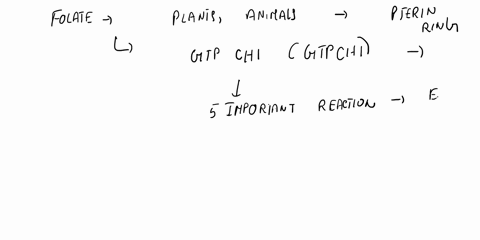 FOLATE → PLANTS, ANIMALS → PTERIN RING
↳ GTP CHI (GTPCHI) →
↓
5 IMPORTANT REACTION → E